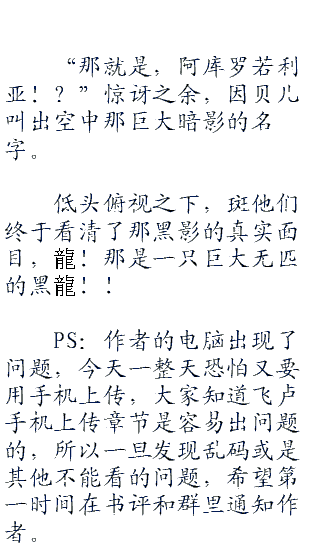 “那就是，阿库罗若利
亚！？”惊讶之余，因贝儿
叫出空中那巨大暗影的名
字。
低头俯视之下，斑他们
终于看清了那黑影的真实面
目，龍！那是一只巨大无匹
的黑龍！！
PS：作者的电脑出现了
问题，今天一整天恐怕又要
用手机上传，大家知道飞卢
手机上传章节是容易出问题
的，所以一旦发现乱码或是
其他不能看的问题，希望第
一时间在书评和群里通知作
者。